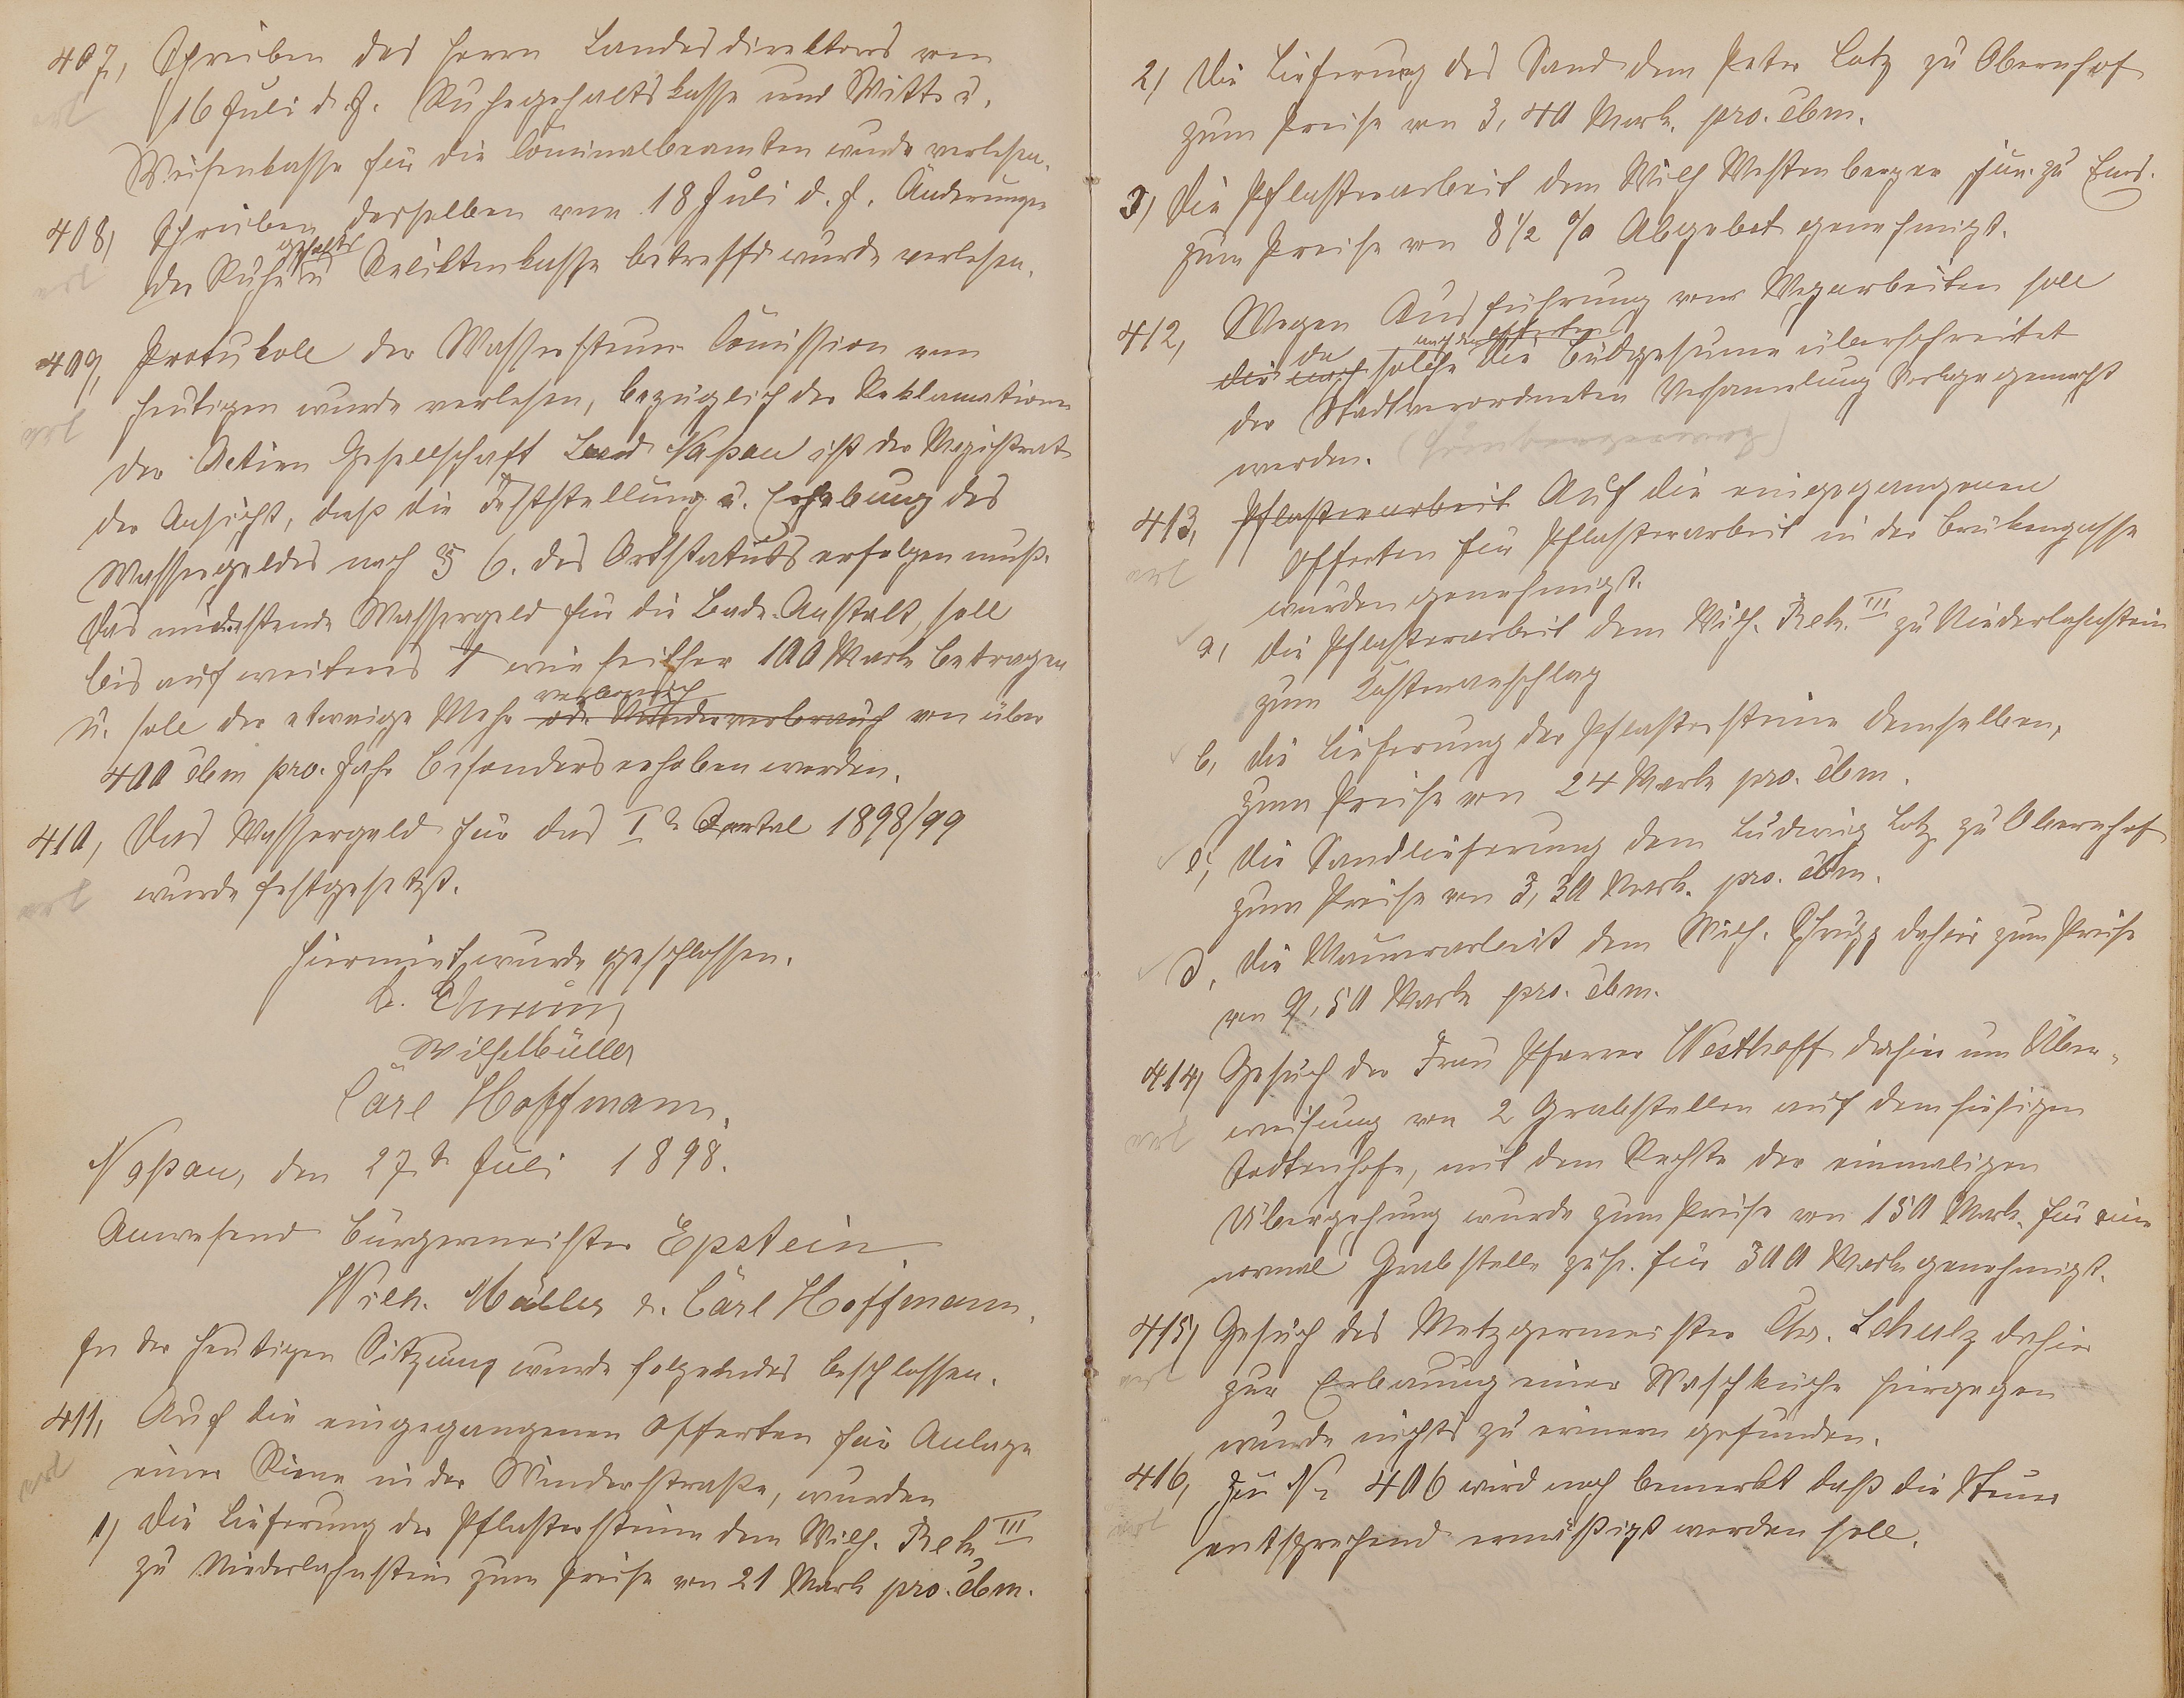 407, Schreiben des Herrn Landesdirektors vom
16 Juli d. J. Ruhegehaltskasse und Wittw u.
Weisenkasse für die Cominalbeamten wurde verlesen.
408, Schreiben desselben vom 18 Juli d. J. Änderungen
der Ruhegehalts u Reliktenkasse betreffd wurde verlesen.
409, Protukoll der Wassersteuer Comission vom
heutigen wurde verlesen, bezüglich der Reklamation
der Actien Gesellschaft Bad Naßau ist der Magistrat
der Ansicht, daß die Feststellung u. Erhebung des
Wassergeldes nach § 6. des Ortstatuts erfolgen muß.
Das mindestende Wassergeld für die Bade-Anstalt, soll
bis auf weiteres wie seither 100 Mark betragen
u. soll der etwaige Mehr verbrauch oder Minderverbrauch von über
400 cbm pro. Jahr besonders erhoben werden.
410, Das Wassergeld für das I te Quartal 1898/99
wurde festgesetzt.
Hiermit wurde geschlossen.
Wilh Müller
Carl Hoffmann.
Naßau, den 27ten Juli 1898.
Anwesend Bürgermeister Epstein
Wilh. Müller u. Carl Hoffmann.
In der heutigen Sitzung wurde folgendes beschlossen.
411, Auf die eingegangenen Offerten für Anlage
einer Rinne in der Windenstraße, wurden
1) Die Lieferung der Pflastersteine dem Wilh. Reh. III
zu Niederlahnstein zum Preise von 21 Mark pro. cbm.
2) Die Lieferung des Sand dem Peter Lotz zu Obernhof
zum Preise von 3,40 Mark. pro. cbm.
3) Die Pflasterarbeit dem Wilh Westenberger jun. zu Ems.
zum Preise von 8 1/2 % Abgebot genehmigt.
412, Wegen Ausführung von Wegarbeiten soll
die noch da solche nach den Offerten die Budgesumme überschreitet
der Stadtverordneten Versamelung Vorlage gemacht
werden.
413, Pflasterarbeit Auf die eingegangenen
Offerten für Pflasterarbeit in der Brükengasse
wurden genehmigt.
a, die Pflasterarbeit dem Wilh. Reh. III zu Niederlahnstein
zum Kostenanschlag
b, die Lieferung der Pflastersteine demselben,
zum Preise von 24 Mark pro. cbm.
c, die Sandlieferung dem Ludwig Lotz zu Obernhof
zum Preise von 3,30 Mark. pro. cbm.
d, die Maurerarbeit dem Wilh. Schrupp dahier zum Preise
von 9,50 Mark pro. cbm.
414, Gesuch der Frau Pfarrer Westhoff dahier um Über-
weisung von 2 Grabstellen auf dem hiesigen
Todtenhofe, mit dem Rechte der einmaligen
Übergehung wurde zum Preise von 150 Mark. für eine
normal Grabstelle zus. für 300 Mark genehmigt.
415, Gesuch des Metzgermeister Chr. Schulz dahier
zur Erbauung einer Waschküche hiergegen
wurde nichts zu erinern gefunden.
416, Zu No 406 wird noch bemerkt daß die Steuer
entsprechend ermäßigt werden soll.